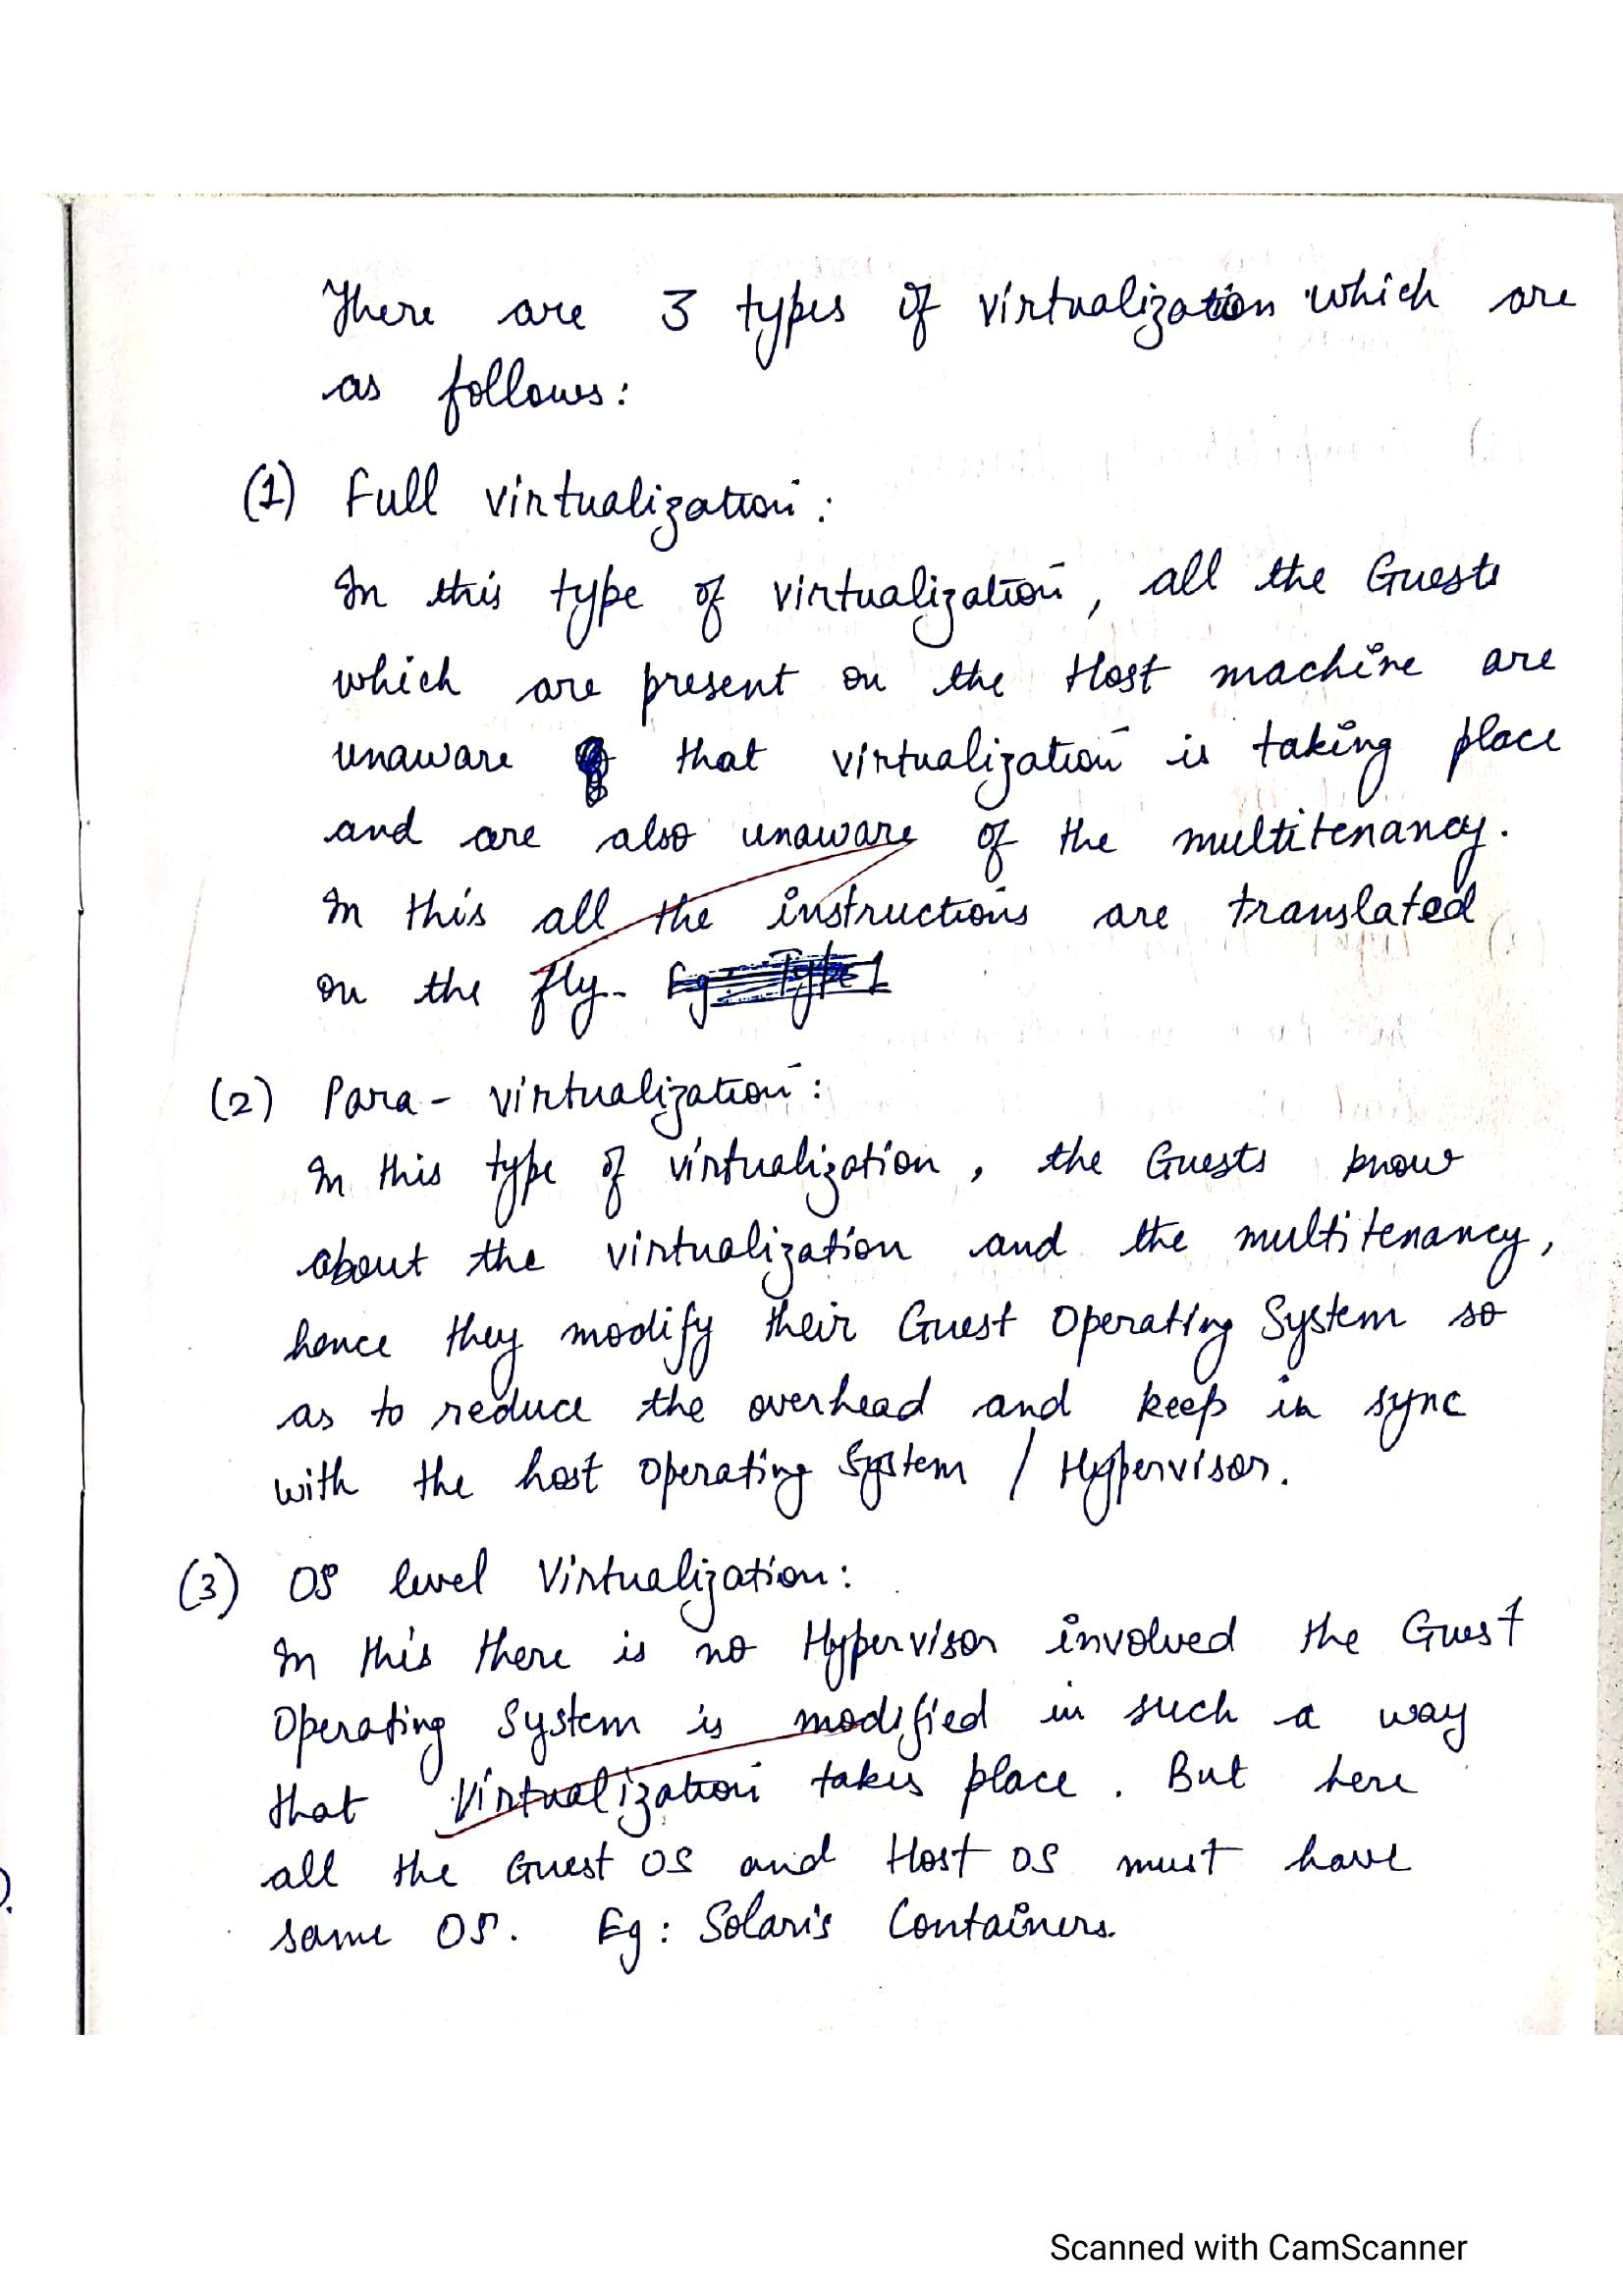 There are 3 types of virtualization which are
as follows:
(1) Full virtualization:
In this type of virtualization, all the Guests
which are present on the Host machine are
unaware that virtualization is taking place
and are also unaware of the multitenancy.
In this all the instructions are translated
on the fly. Eg: Type 1
(2) Para - virtualization:
In this type of virtualization, the Guests know
about the virtualization and the multitenancy,
hence they modify their Guest Operating System so
as to reduce the overhead and keep in sync
with the host operating System / Hypervisor.
(3) OS level Virtualization:
In this there is no Hypervisor involved the Guest
Operating System is modified in such a way
that Virtualization takes place. But here
all the Guest OS and Host OS must have
same OS. Eg: Solaris Containers.
Scanned with CamScanner